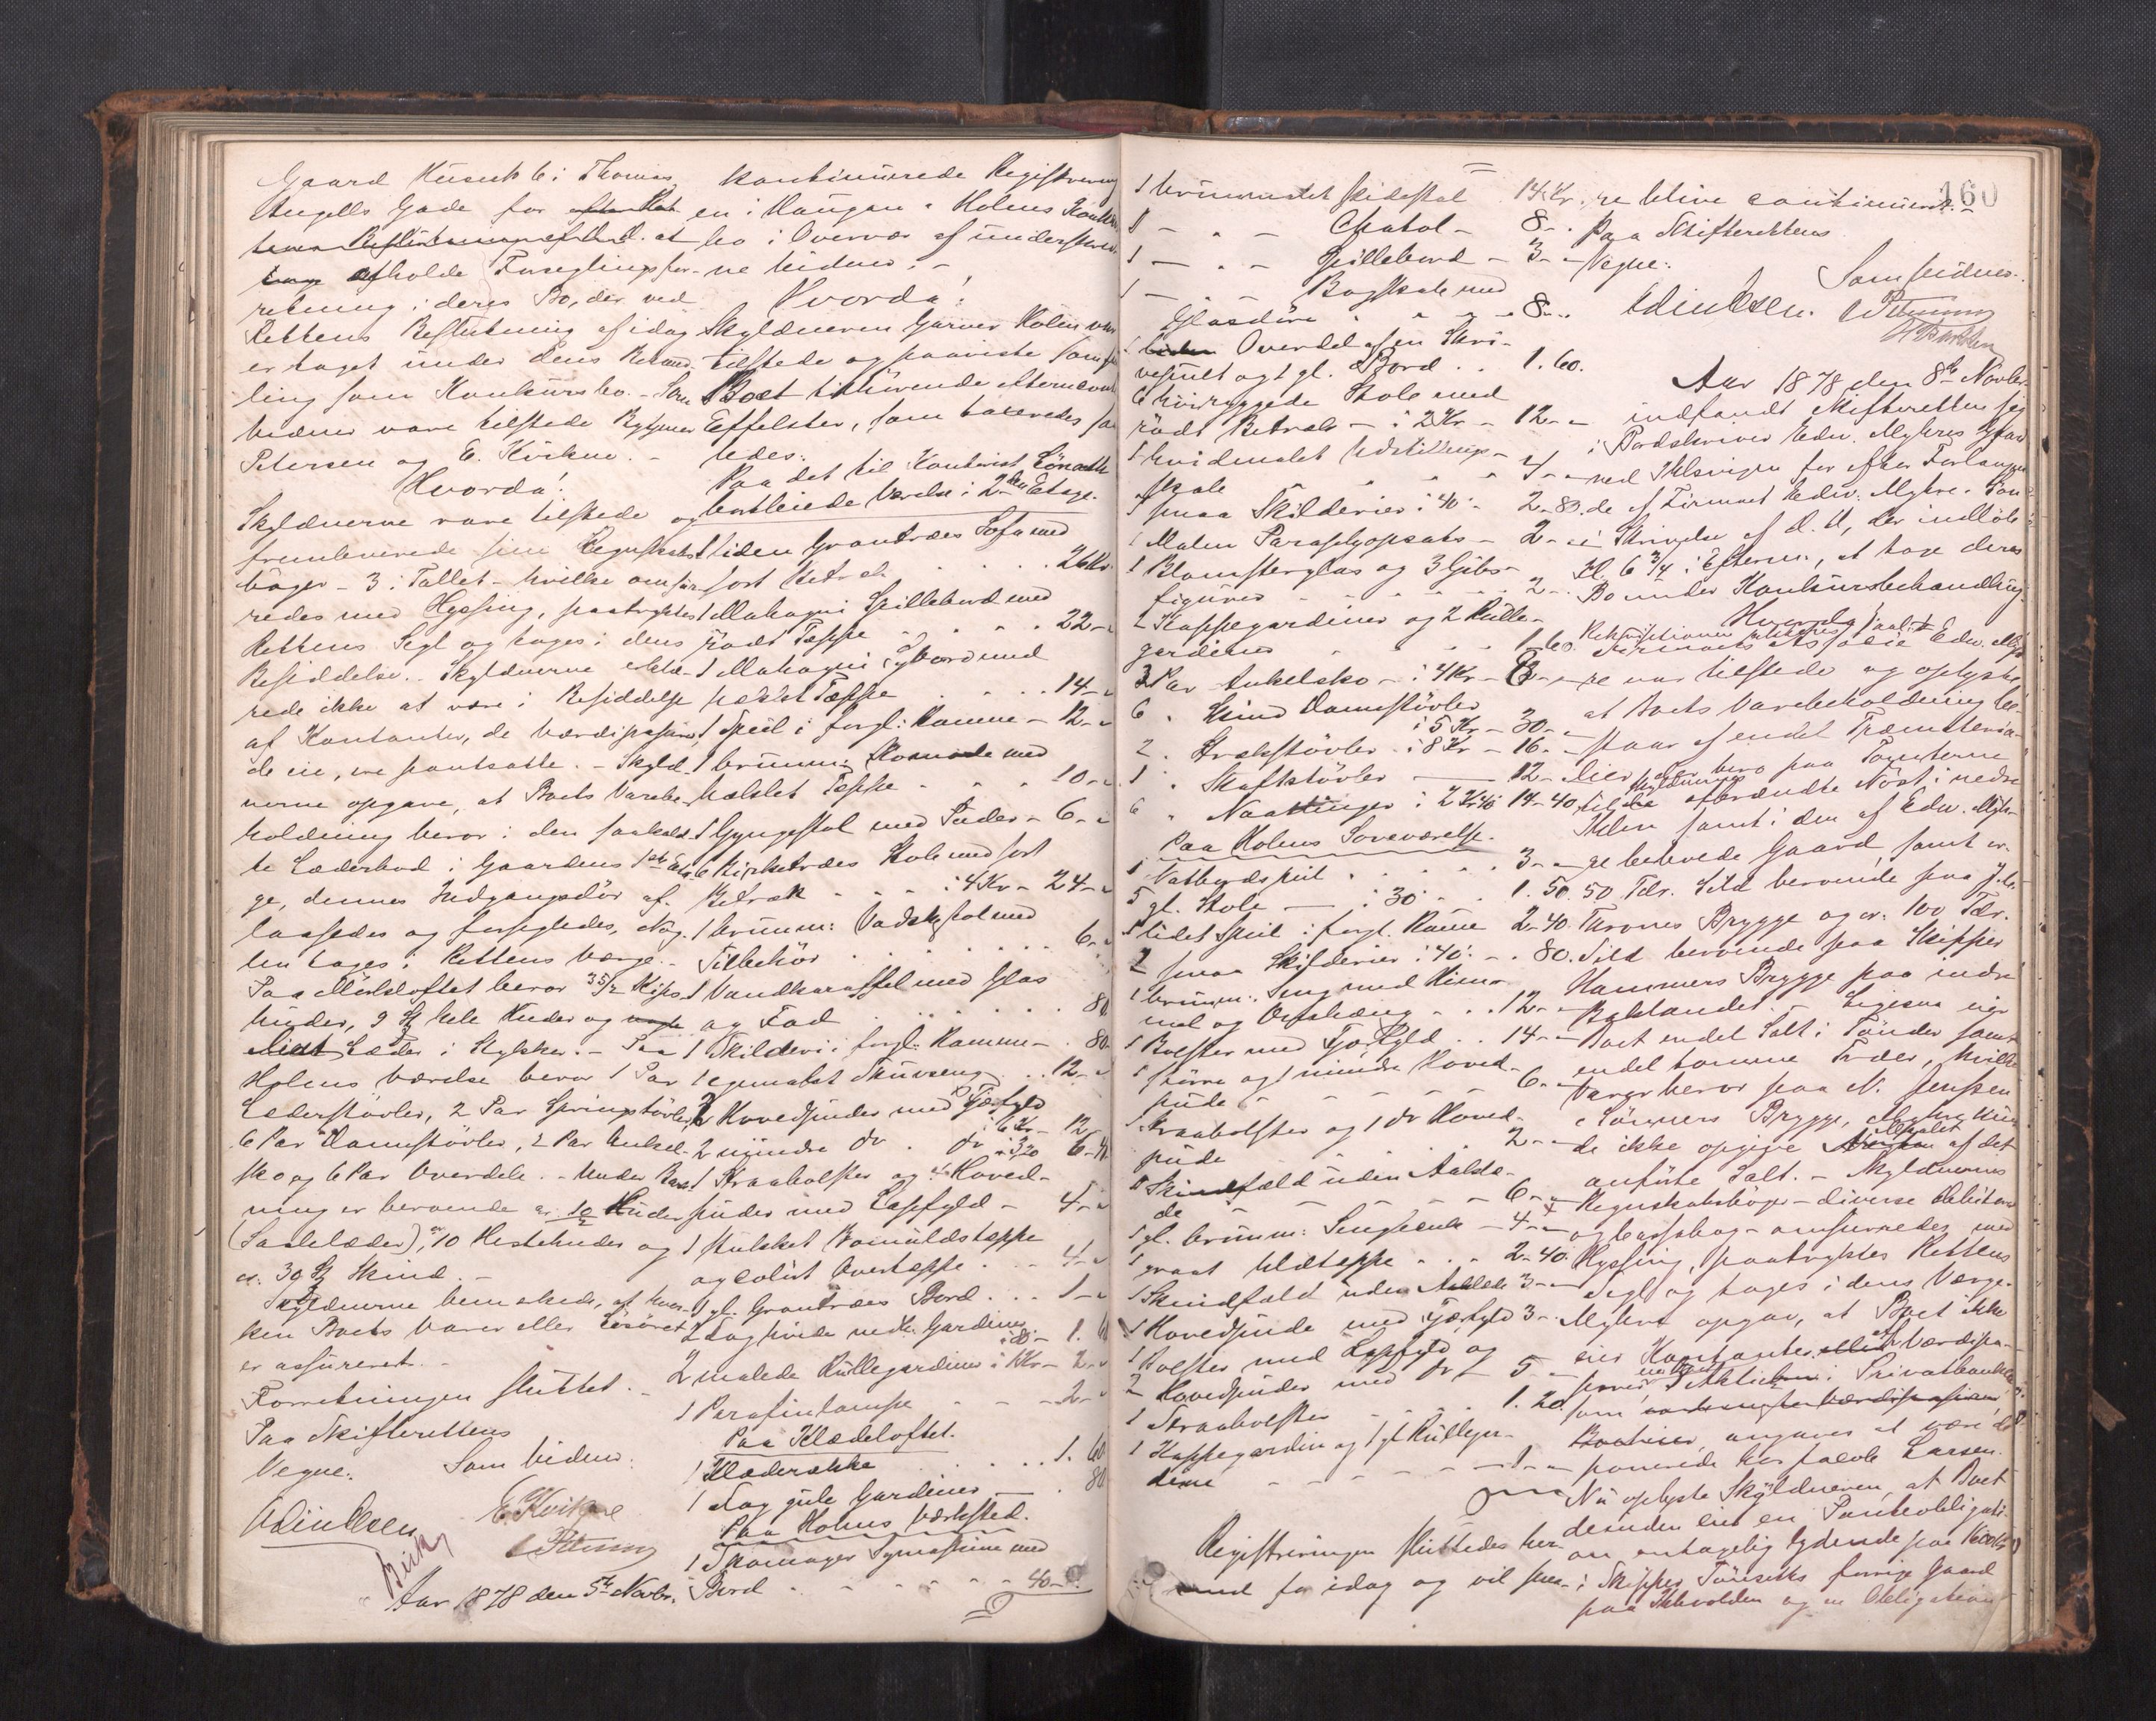 Gaard Huseb 6 i Thomas
Angells Gade for efter Ret
tens Beslutning af d.d. at
afholde Forseglingsfor-
retning i deres Bo, der ved
Rettens Beslutning af idag
er taget under dens Behand-
ling som Konkursbo. - Som
Vidner vare tilstede
Petersen og E. Kvikne. -
Hvorda!
Skyldnerne vare tilstede og
fremleverede sine Regnskabs-
bøger - 3 i Tallet - hvilke omsnø-
redes med Hyssing, paatryktes
Rettens Segl og toges i dens
Besiddelse. - Skyldnerne erklæ-
rede ikke at være i Besiddelse
af Kontanter, de Værdipapirer,
de eie, ere pantsatte. - Skyld-
nerne opgave, at Boets Varebe-
holdning beror i den saakald-
te Læderbod i Gaardens 1ste Eta-
ge, dennes Indgangsdør af-
laasedes og forsegledes, Nøg-
len toges i Rettens Værge. -
Paa Mørkeloftet beror 35/2 Kips-
huder, 9 hele Huder og
Læder i Stykker. - Paa
Holms Værelse beror 1 Par
Læderstøvler, 2 Par Springstøvler,
6 Par Damestøvler, 2 Par Ankel-
sko og 6 Par Overdele. - Under
ning er beroende cr. 10/2 Huder
(Saalelæder), cr. 10 Hestehuder og
cr. 39 Skind. -
Skyldnerne bemærkede, at hver-
ken Boets Varer eller Løsøre
er assureret. -
Forretningen sluttet. -
Paa Skifterettens
Vegne: Som Vidner:
Edin Olsen E. Kvikne
Petersen
Aar 1878 den 5te Novbr.
kontinuerede Registrering-
en i Haugan & Holms Konkurs-
bo i Overvær af underskrev-
ne Vidner. -
Hvorda!
Skyldneren Garver Holm var
tilstede og paaviste som
Boet tilhørende efternævnte
Effekter, som taxeredes saa-
ledes:
Paa det til Kontorist
bortleiede Værelse i 2den Etage.
1 liden Grantræes Sofa med
sort Betræk . . . . 26 Kr.
1 Mahogni Spillebord med
rødt Teppe . . . 22 -
1 Mahogni Sybord med
hæklet Tæppe . . . 14 -
1 Speil i forgl: Ramme - 12 -
1 brunm: Komode med
hæklet Tæppe . . . 10 -
1 Gyngestol med Puder - 6 -
6 Birketræes Stole med sort
Betræk - - - i 4 Kr - 24 -
1 brunm: Vadskestol med
Tilbehør . . . . . 6 -
1 Vandkaraffel med Glas
og Fad . . . . . . 80
1 Skilderi i forgl: Ramme - . 80
1 egemalet Skuvseng . . 12 -
2 Hovedpuder med Fjærfyld
i 6 Kr - 12
2 mindre do . do i 3,20 6 - 40
1 Straabolster og 2 Hoved-
puder med Lapfyld - 4 -
1 stukket Bomuldstæppe
og coulørt Overtæppe . . . 4 -
1 gl. Grantræes Bord . . . 1 -
2 Fag hvide nedh. Gardiner
i 80 - 1. 60
2 malede Rullegardiner i 1 Kr - 2 -
1 Parafinlampe . . . 2 -
Paa Klædeloftet.
1 Klæderække . . . . 1. 60
1 Fag gule Gardiner - . 80
Paa Holms Værksted.
1 Skomager Symaskine med
Bord . . . . . . 40 -
160
1 brunmalet Skidestol 14 Kr.
1 - " - Chatol - 8 -
1 - " - Spillebord - 3 -
1 - " - Bogskab med
Glasdøre . . . . 8 -
1 Overdel af en Skri-
vepult og 1 gl. Bord . . 1. 60.
6 høiryggede Stole med
rødt Betræk - i 2 Kr - 12 -
1 hvidmalet Udstillings-
skab . . . . 4 -
7 smaa Skilderier i 40 - 2 - 80.
1 Malm Paraplyopsats - 2 -
1 Blomsterglas og 3 Gibs-
figurer . . . . . 2 -
2 Kappegardiner og 2 Rulle-
gardiner . . . . 1 - 60.
2 Par Ankelsko - i 4 Kr - 8 -
6 " Skind Damestøvler
i 5 Kr - 30 -
2 " Strikstøvler - i 8 Kr - 16 -
1 " Skaftstøvler - 12 -
6 " Naatlinger i 2 Kr 40 14 - 40.
Paa Holms Soveværelse.
1 Natbordspeil . . . . 3 -
5 gl. Stole - i 30 - 1. 50.
1 lidet Speil i forgl. Ramme 2 - 40.
2 smaa Skilderier i 40 - . 80.
1 brunm. Seng med Him-
mel og Omhæng . . 12 -
1 Bolster med Fjærfyld . . 14 -
1 større og 1 mindre Hoved-
pude . . . . . 6 -
1 Straabolster og 1 do Hoved-
pude . . . . . 2 -
1 Skindfæld uden Aaklæ-
de - - - - 6 -
1 gl. brunm: Sengbenk - 4 -
1 graat Uldteppe . . . 2 - 40.
1 Skindfæld uden Aaklæde 3 -
1 Hovedpude med Fjærfyld 3 -
1 Bolster med Lapfyld og
2 Hovedpuder med do 5 -
1 Straabolster - - - 1. 20.
1 Kappegardin og 1 gl. Rullegar-
dine - - - - - 1 -
Registreringen sluttedes her-
med for idag og vil sene-
re blive continueret. -
Paa Skifterettens
Vegne: Som Vidner.
Edin Olsen. Petersen
Aar 1878 den 8de Novbr.
indfandt Skifteretten sig
i Tordskriver Edv. Myhres Gaard
ved Ihlevigen for efter Forlangen-
de af Firmaet Edv. Myhre & Søn
i Skrivelse af d. D., der indløb
Kl. 6 3/4 i Efterm:, at tage deres
Bo under Konkursbehandling.
Hvorda!
Rekvisitionen fremlagdes saal:
Firmaets Associe Edv. Myh-
re var tilstede og oplyste,
at Boets Varebeholdning be-
staar af endel Træmateria-
lier, der bero paa Tomterne
til de Skyldnerne afbrændte Nøst i nedre
Ihlen samt i den af Edv. Myh-
re beboede Gaard samt cr.
50 Tdr. Sild beroende paa
Thrones Brygge og cr. 100 Tdr.
Sild beroende paa Skipper
Hammers Brygge paa indre
Baklandet. - Ligesaa eier
Boet endel Salt i Tønder samt
endel tomme Træer, hvilke
Varer beror paa N. Jenssen
& Sønners Brygge, Myhre kun-
de ikke opgive Maalet af det
anførte Salt. - Skyldnernes
Regnskabsbøger - diverse Debitorer
og Cassabog - omsnøredes med
Hyssing, paatryktes Rettens
Segl og toges i dens Værge.
Myhre opgav, at Boet ikke
eier Kontanter, af Værdipa-
pirer Aktier i Privatbanken,
som
angaves at være de-
ponerede hos Jacob Larsen.
Nu oplyste Skyldneren, at Boet
desuden eier en Panteobligati-
on antagelig lydende paa 1600 Kr
i Skipper Tønseths forrige Gaard
paa Ihlevolden og en Obligation